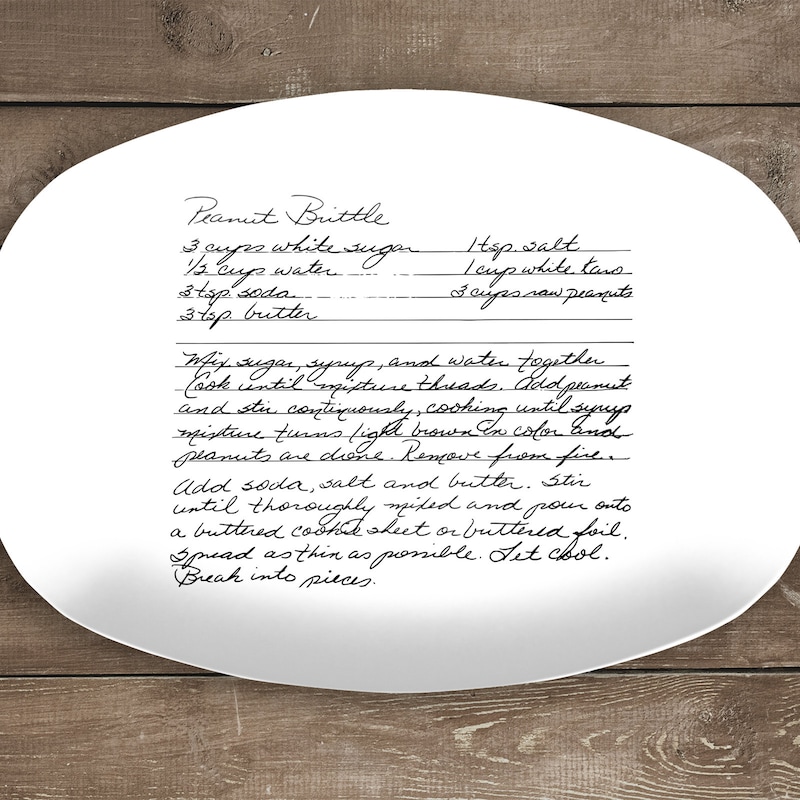 Peanut Brittle
3 cups white sugar 1 tsp. salt
1/2 cup water 1 cup white Karo
3 tsp. soda 3 cups raw peanuts
3 tsp. butter
Mix sugar, syrup, and water together
Cook until mixture threads. Add peanut
and stir continuously, cooking until syrup
mixture turns light brown in color and
peanuts are done. Remove from fire.
Add soda, salt and butter. Stir
until thoroughly mixed and pour onto
a buttered cookie sheet or buttered foil.
Spread as thin as possible. Let cool.
Break into pieces.